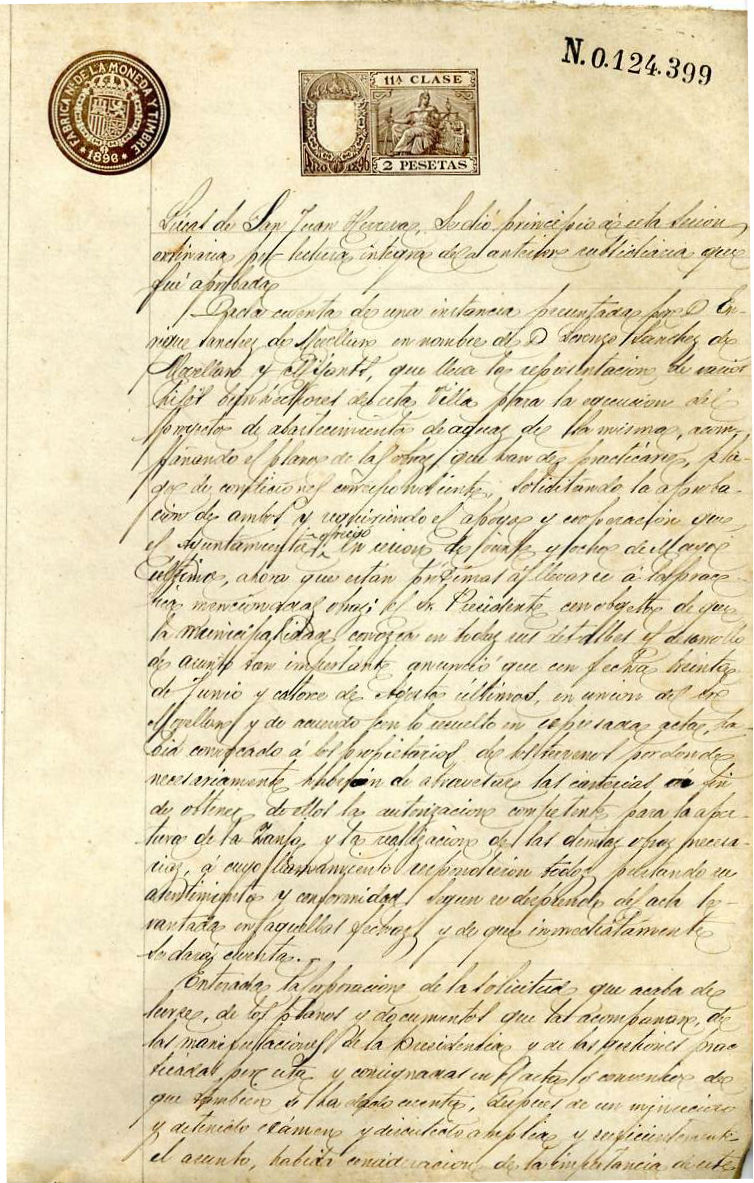 N.0.124.399
FABRICA NAL DE LA MONEDA Y TIMBRE
* 1896 *
11ª CLASE
AÑO 1896
2 PESETAS
Lúcas de San Juan Herrera. Se dió principio á esta sesion
ordinaria por lectura íntegra de la anterior subsidiaria que
fué aprobada
Dada cuenta de una instancia presentada por D. En-
rique Sanchez de Movellan en nombre de D. Lorenzo Sanchez de
Movellan y que lleva la representacion de varios
hijos bienhechores de esta Villa para la ejecucion del
proyecto de abastecimiento de aguas de la misma, acom-
pañando el plano de las obras que han de practicarse, plie-
go de condiciones correspondiente, solicitando la aproba-
cion de ambos y requiriendo el apoyo y cooperacion que
el Ayuntamiento ofreció en sesion de veinte y ocho de Mayo
último, ahora que están próximas á llevarse á la prac-
tica mencionadas obras; el Sr. Presidente con objeto de que
la municipalidad conozca en todos sus detalles y desarrollo
de asunto tan importante anunció que con fecha treinta
de Junio y catorce de Agosto últimos, en union del Sr.
Movellan y de acuerdo con lo resuelto en espresada acta, ha-
bia convocado á los propietarios de los terrenos por donde
necesariamente habrian de atravesar las cañerias, en fin
de obtener de ellos la autorizacion competente para la aper-
tura de la zanja y la realizacion de las demas obras necesa-
rias, á cuyo llamamiento respondieron todos prestando su
asentimiento y conformidad segun se desprende del acta le-
vantada en aquellas fechas y de que inmediatamente
se dará cuenta.
Enterada la Corporacion de la solicitud que acaba de
leerse, de los planos y documentos que la acompañan, de
las manifestaciones de la Presidencia y de las gestiones prac-
ticadas por esta y consignadas en el acta de convenio de
que tambien se ha dado cuenta, despues de un minucioso
y detenido exámen y discutido amplia y suficientemente
el asunto, habida consideracion de la importancia de este